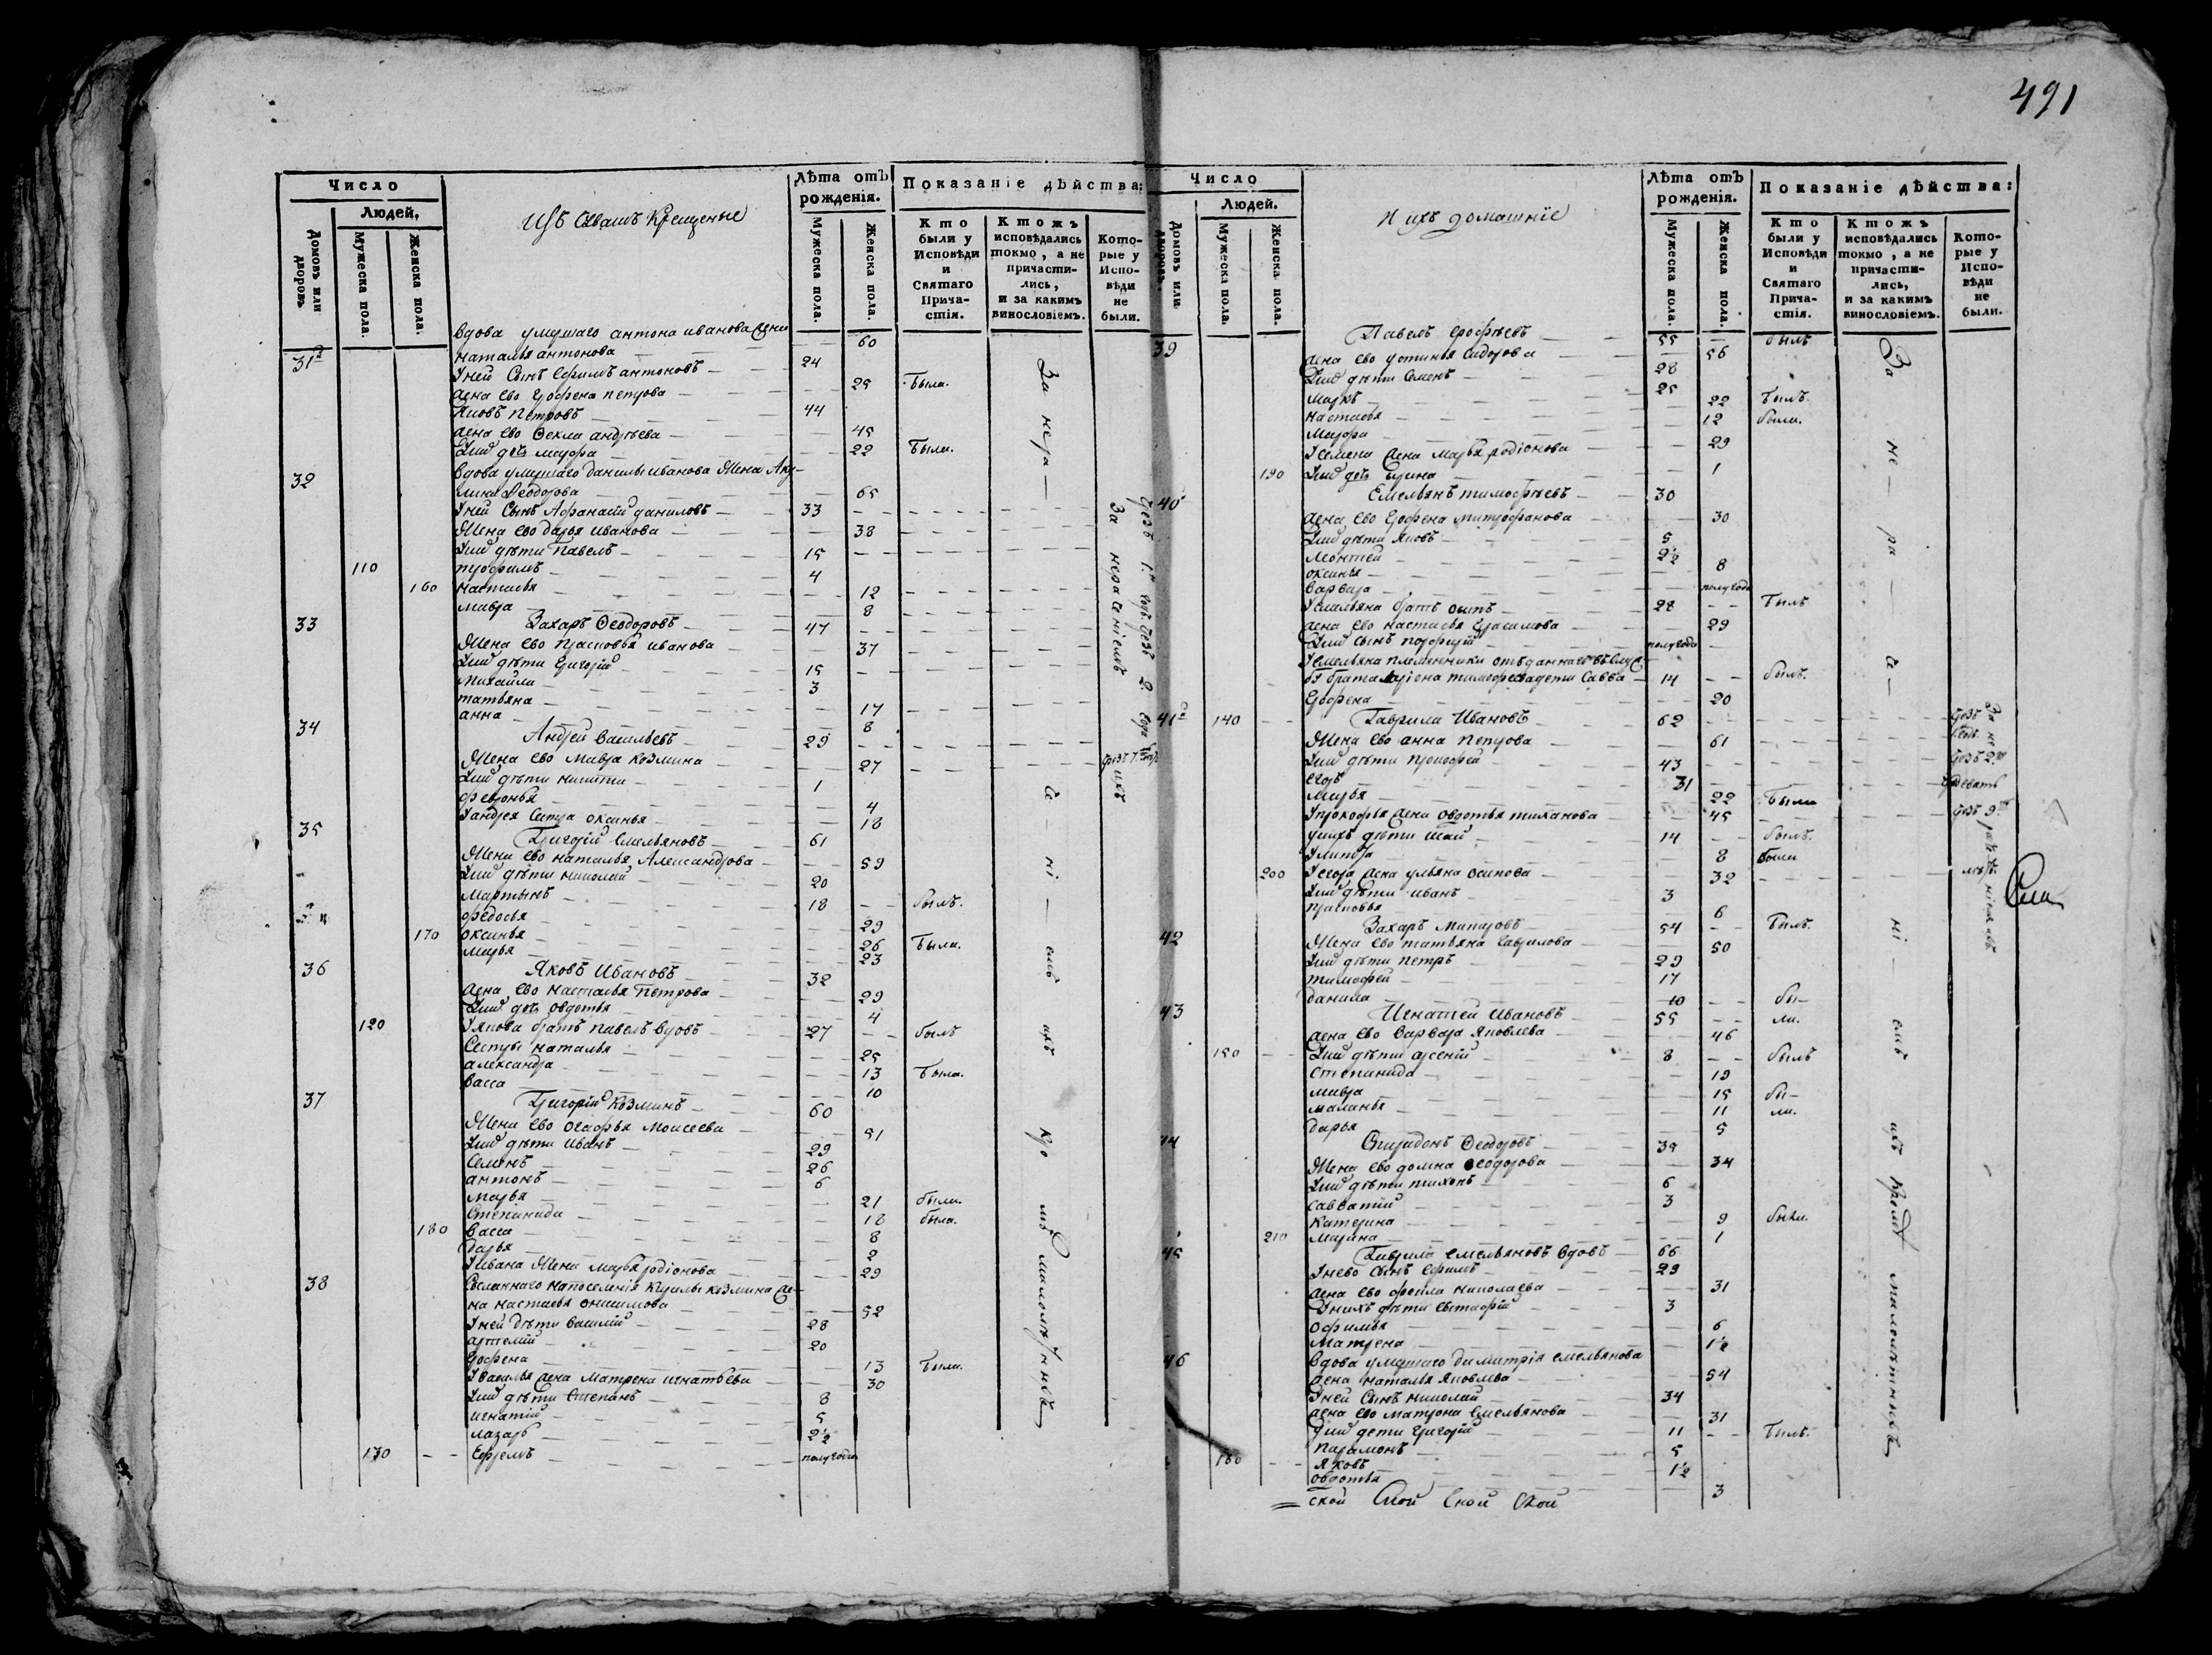 491
Число
Людей.
Домовъ или дворовъ
Мужеска пола.
Женска пола.
Изъ Чвашъ Крещеные
Лѣта отъ рожденія.
Мужеска пола.
Женска пола.
Показаніе дѣйства:
Кто были у Исповѣди и Святаго Причастія.
Ктожъ исповѣдались токмо, а не причастились, и за какимъ винословіемъ.
Которые у Исповѣди не были.
вдова умршаго антона иванова жена
31 наталья антонова 60
Уней Сынъ Ефимъ антоновъ 24
жена ево Ерофена петрова 25 была.
Яковъ Петровъ 44
жена ево Ѳекла андрѣева 45
Ихъ дочь маѵра 22 Была.
32 вдова умршаго данилы иванова Жена Аку-
лина Ѳеодорова 65
Уней Сынъ Афанасій даниловъ 33
Жена ево дарья иванова 38
Ихъ дѣти Павелъ 15
110 трофимъ 4
160 настасья 12
мавра 8
33 Захаръ Ѳеодоровъ 47
Жена ево прасковья иванова 37
Ихъ дѣти Григорій 15
михайла 3
татьяна 17
анна 8
34 Андрей васильевъ 29
Жена ево мавра козмина 27
Ихъ дѣти никита 1
февронья 4
Уандрея Сестра оксинья 18
35 Григорій Емельяновъ 61
Жена ево наталья Александрова 59
Ихъ дѣти николай 20
мартынъ 18 былъ.
федосья 29
170 оксинья 26 Были.
марья 23
36 Яковъ Ивановъ 32
жена ево настасья Петрова 29
Ихъ дочь овдотья 4
120 Уякова братъ павелъ вдовъ 27 былъ
Сестры наталья 25
александра 13 Была.
васса 10
37 Григорій Козминъ 60
Жена ево огафья Моисеева 51
Ихъ дѣти Иванъ 29
Семенъ 26
антонъ 6
марья 21 была.
Степанида 18 была.
180 васса 8
дарья 2
Уивана Жена марья родіонова 29
38 Сосланнаго напоселенія Кирилы козмина же-
на настасья онисимова 52
Уней дѣти василій 28
артемій 20
Ерофена 13 Была.
Увасилья жена матрена игнатьева 30
Ихъ дѣти Степанъ 8
игнатій 5
лазарь 2½
130 Ефремъ полугода
За нера — че — ні — емъ ихъ кро мѣ малолѣтныхъ
За нераченіемъ ихъ
Число
Людей.
Домовъ или дворовъ.
Мужеска пола.
Женска пола.
И ихъ домашніе
Лѣта отъ рожденія.
Мужеска пола.
Женска пола.
Показаніе дѣйства:
Кто были у Исповѣди и Святаго Причастія.
Ктожъ исповѣдались токмо, а не причастились, и за какимъ винословіемъ.
Которые у Исповѣди не были.
39 Павелъ Ерофѣевъ 55 былъ
жена ево устинья Сидорова 56
Ихъ дѣти Семенъ 28
маркъ 25 Былъ.
настасья 22 были.
маѵра 12
Усемена жена марья родіонова 29
190 Ихъ дочь Ирина 1
40 Емельянъ тимофѣевъ 30
жена ево Ерофена митрофанова 30
Ихъ дѣти Яковъ 5
леонтей 2½
оксинья 8
варвара полугода
Уемельяна братъ осипъ 28 Былъ
жена ево настасья Герасимова 29
Ихъ сынъ порфирій полугода
Уемельяна племянники отъданнаго въ служ-
бу брата тимофеева дети Савва 14 былъ.
Ерофена 20
41 140 Гаврила Ивановъ 62
Жена ево анна петрова 61
Ихъ дѣти прокофей 43
егоръ 31
марья 22 Была
Упрокофья жена овдотья тиханова 45
уихъ дѣти 14 былъ.
Улинора 8 была
200 Уегора жена ульяна осипова 32
Ихъ дѣти иванъ 3
прасковья 6
42 Захаръ Митровъ 54 Былъ.
Жена ево татьяна гаврилова 50
Ихъ дѣти петръ 29
тимофей 17
данила 10 бы-
43 Игнатей Ивановъ 55 ли.
жена ево варвара Яковлева 46
150 Ихъ дѣти арсеній 8 былъ
степанида 19
мавра 15 бы-
маланья 11 ли.
дарья 5
44 Спиридонъ Ѳеодоровъ 39
Жена ево домна ѳеодорова 34
Ихъ дѣти тихонъ 6
савватій 3
катерина 9 была.
210 марина 1
45 Гаврила емельяновъ вдовъ 66
Унево сынъ Ефимъ 29
жена ево фекла николаева 31
Унихъ дѣти евстафій 3
офимья 6
Матрена 1½
46 вдова умршаго димитрія емельянова
жена наталья Яковлева 54
Уней Сынъ николай 34
жена ево матрона Емельянова 31
Ихъ дети Григорій 11 Былъ.
парамонъ 5
160 Яковъ 1½
овдотья 3
За не — ра — че — ні — емъ ихъ кромѣ малолѣтныхъ
ской